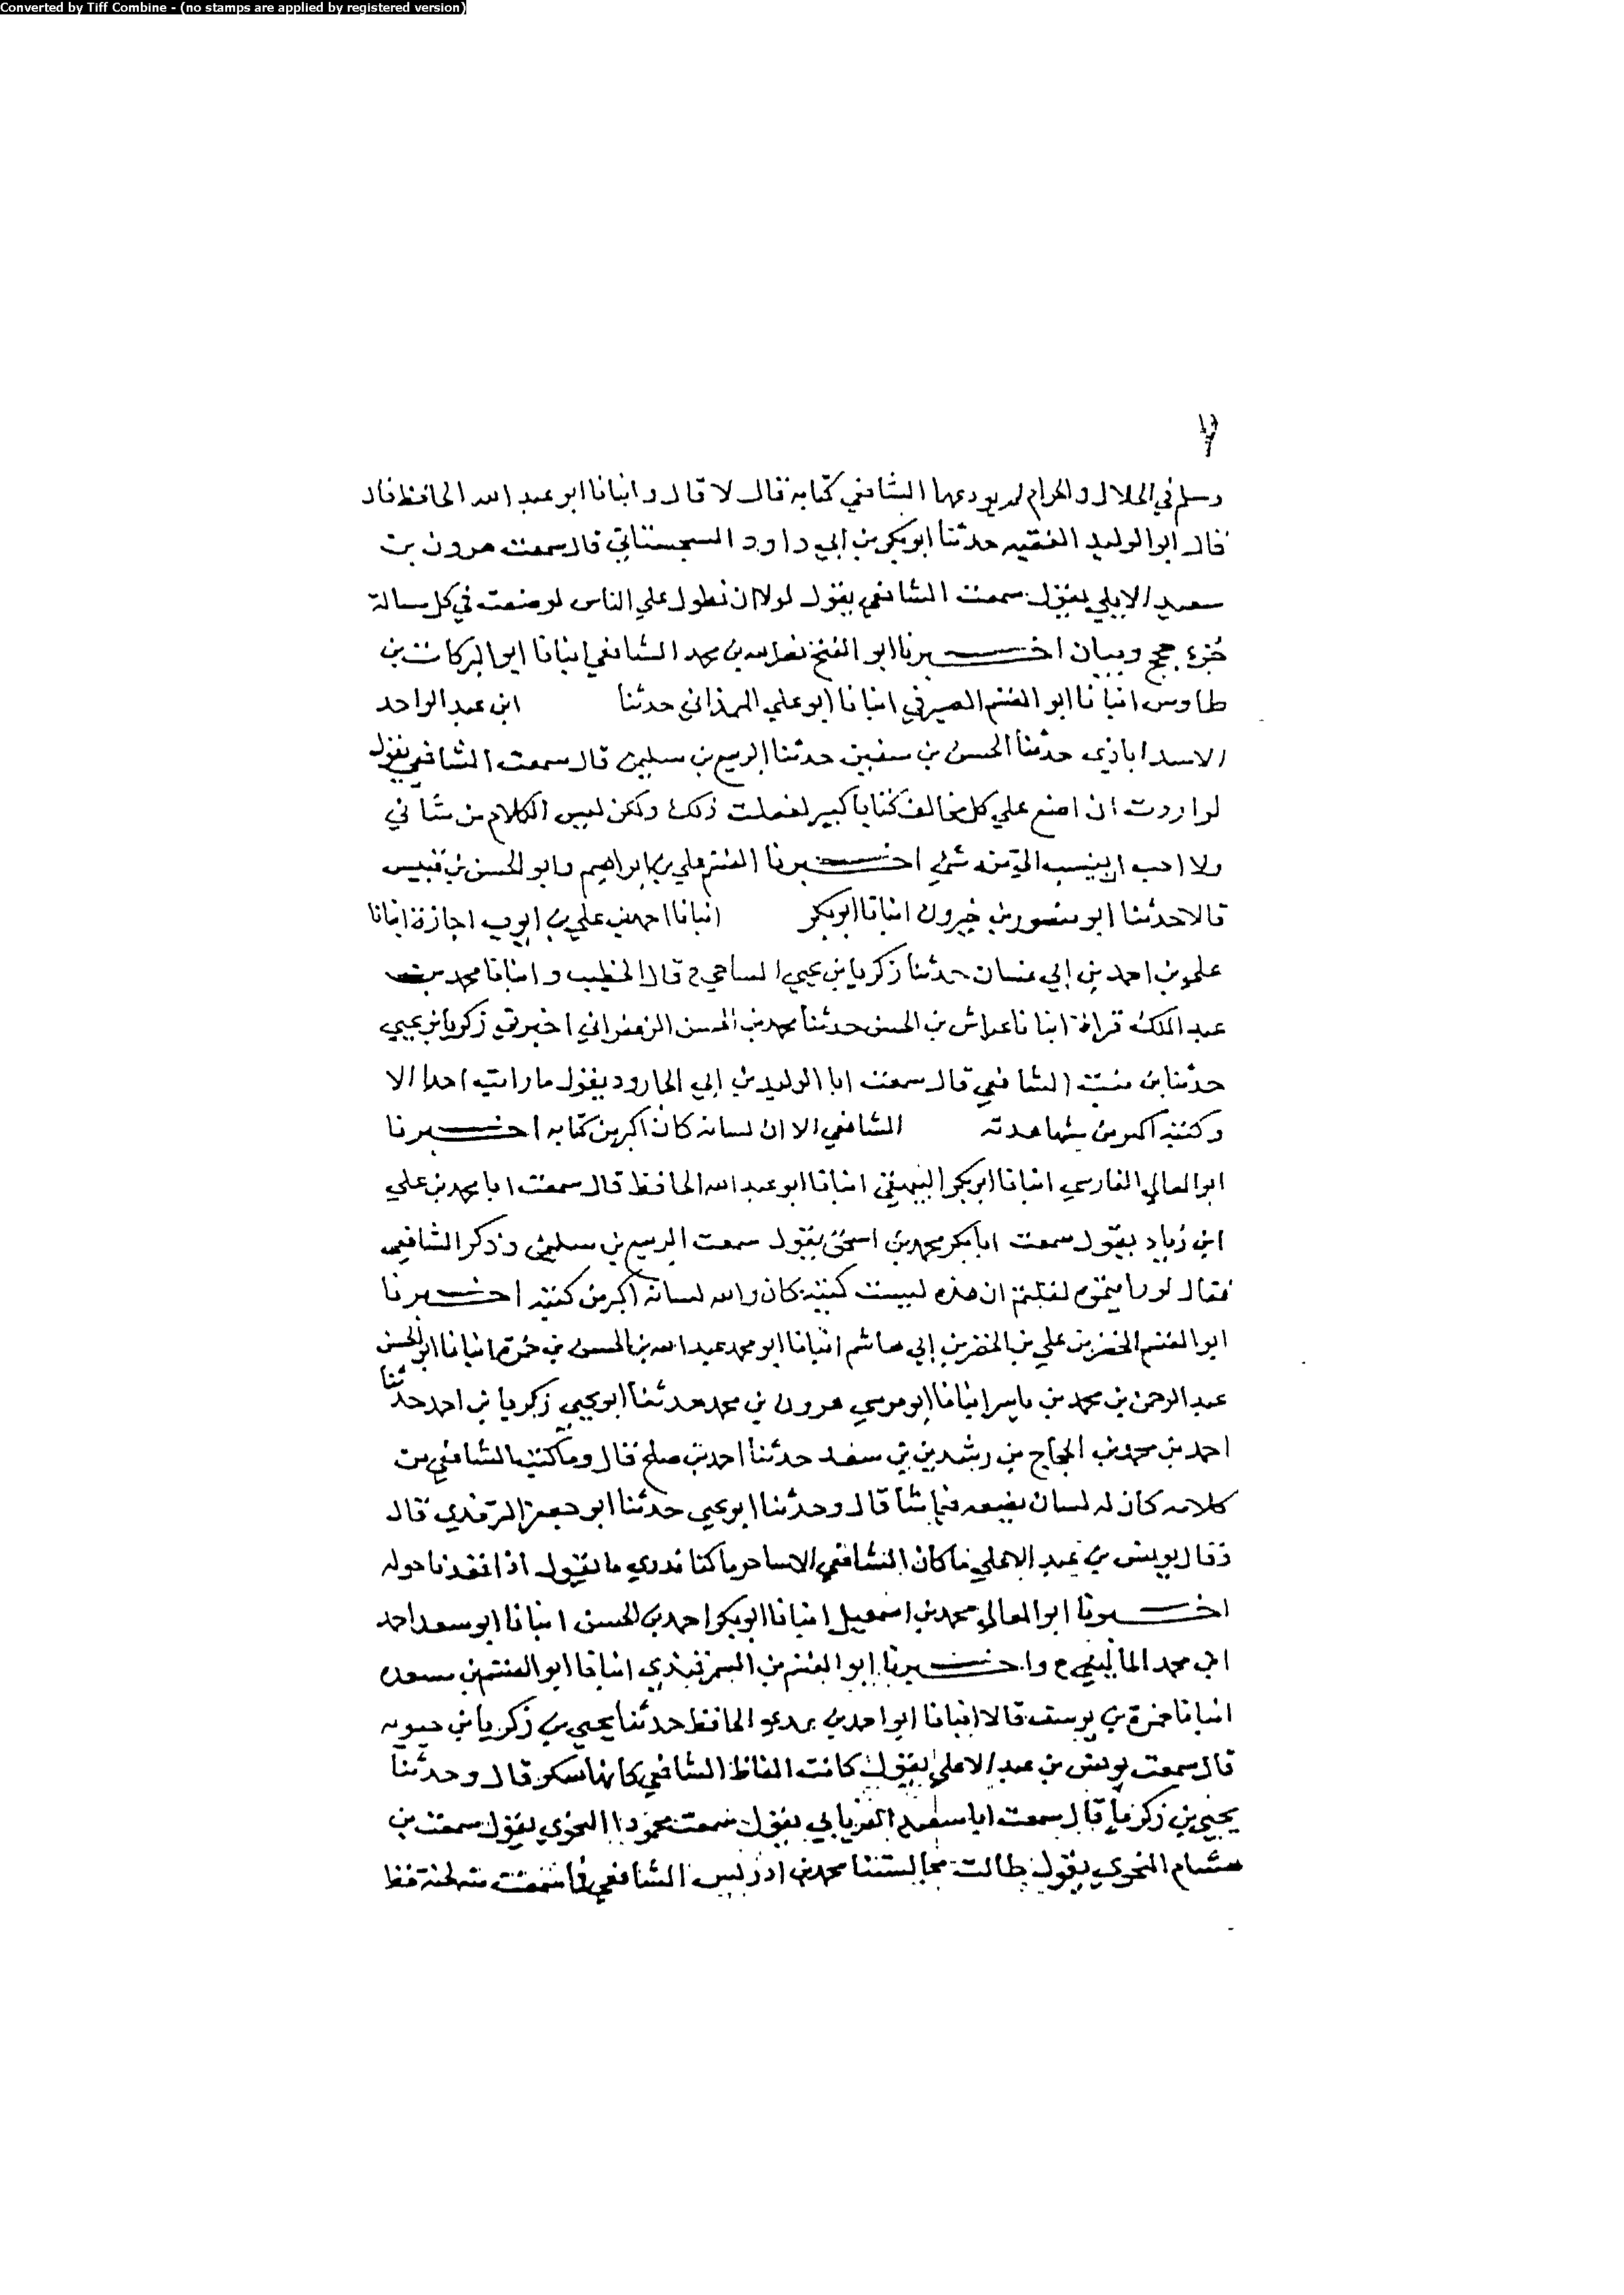 Converted by Tiff Combine - (no stamps are applied by registered version)
وسلم في الحلال والحرام لم يودعها الشافعي كتابه قال لا قال وانبانا ابو عبد الله الحافظ قال
قال ابو الوليد الفقيه حدثنا ابو بكر بن ابي داود السجستاني قال سمعت هرون بن
سعيد الايلي يقول سمعت الشافعي يقول لولا ان نطول علي الناس لوضعت في كل مسالة
جزء حجج وبيان اخبرنا ابو الفتح نصر الله بن محمد الشافعي انبانا ابو البركات بن
طاوس انبانا ابو القسم الصيرفي انبانا ابو علي حدثنا ابن عبد الواحد
الاسداباذي حدثنا الحسن بن سفين حدثنا الربيع بن سليمن قال سمعت الشافعي يقول
لو اردت ان اضع علي كل مخالف كتابا كبير لفعلت ذلك ولكن ليس الكلام من شاني
ولا احب ان ينسب الي منه شي اخبرنا القسم علي بن ابراهيم وابو الحسن بن قبيس
قالا حدثنا ابو منصور بن خيرون انبانا ابو بكر انبانا احمد بن علي بن ايوب اجازة انبانا
علي بن احمد بن ابي غسان حدثنا زكريا بن يحيي الساجي ح قال الخطيب وانبانا محمد بن
عبد الملك قراة انبانا عياش بن الحسن حدثنا محمد بن الحسن الزعفراني اخبرني زكريا بن يحيي
حدثنا بن بنت الشافعي قال سمعت ابا الوليد بن ابي الجارود يقول ما رايت احدا الا
وكتبه اكبر من مشاهدته الشافعي الا ان لسانه كان اكبر من كتابه اخبرنا
ابو المعالي الفارسي انبانا ابو بكر البيهقي انبانا ابو عبد الله الحافظ قال سمعت ابا محمد بن علي
ابن زياد يقول سمعت ابا بكر محمد بن اسحق يقول سمعت الربيع بن سليمن وذكر الشافعي
فقال لو رايتموه لقلتم ان هذه ليست كتبه كان والله لسانه اكبر من كتبه اخبرنا
ابو القسم الخضر بن علي بن الخضر بن ابي هاشم انبانا ابو محمد عبد الله بن الحسن بن حمزة انبانا ابو الحسن
عبد الرحمن بن محمد بن ياسر انبانا ابو موسي هرون بن محمد حدثنا ابو يحيي زكريا بن احمد حدثنا
احمد بن محمد بن الحجاج بن رشدين بن سعد حدثنا احمد بن صلح فقال وما كتب الشافعي من
كلامه كان له لسان يضعه فيما شا قال وحدثنا ابو يحيي حدثنا ابو جعفر الترمذي قال
وقال يونس بن عبد الاعلي ما كان الشافعي الا ساحر ما كنا ندري ما يقول اذا قعدنا حوله
اخبرنا ابو المعالي محمد بن اسمعيل انبانا ابو بكر احمد بن الحسن انبانا ابو سعد احمد
ابن محمد الماليني ح واخبرنا ابو القسم بن السمرقندي انبانا ابو القسم بن مسعده
انبانا حمزة بن يوسف قالا انبانا ابو احمد بن عدي الحافظ حدثنا يحيي بن زكريا بن حيويه
قال سمعت يونس بن عبد الاعلي يقول كانت الفاظ الشافعي كانها سكر قال وحدثنا
يحيي بن زكريا قال سمعت ابا سعيد الفريابي يقول سمعت محمودا النحوي يقول سمعت بن
هشام النحوي يقول طالت مجالستنا محمد بن ادريس الشافعي فما سمعت منه لحنة قط